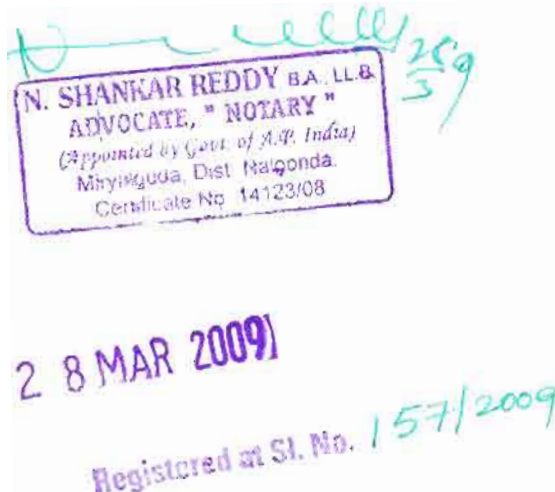 28/3/9
N. SHANKAR REDDY B.A., LL.B.
ADVOCATE, " NOTARY "
(Appointed by Govt. of A.P. India)
Miryalguda, Dist. Nalgonda.
Certificate No. 14123/08
2 8 MAR 2009
Registered at Sl. No. 157/2009